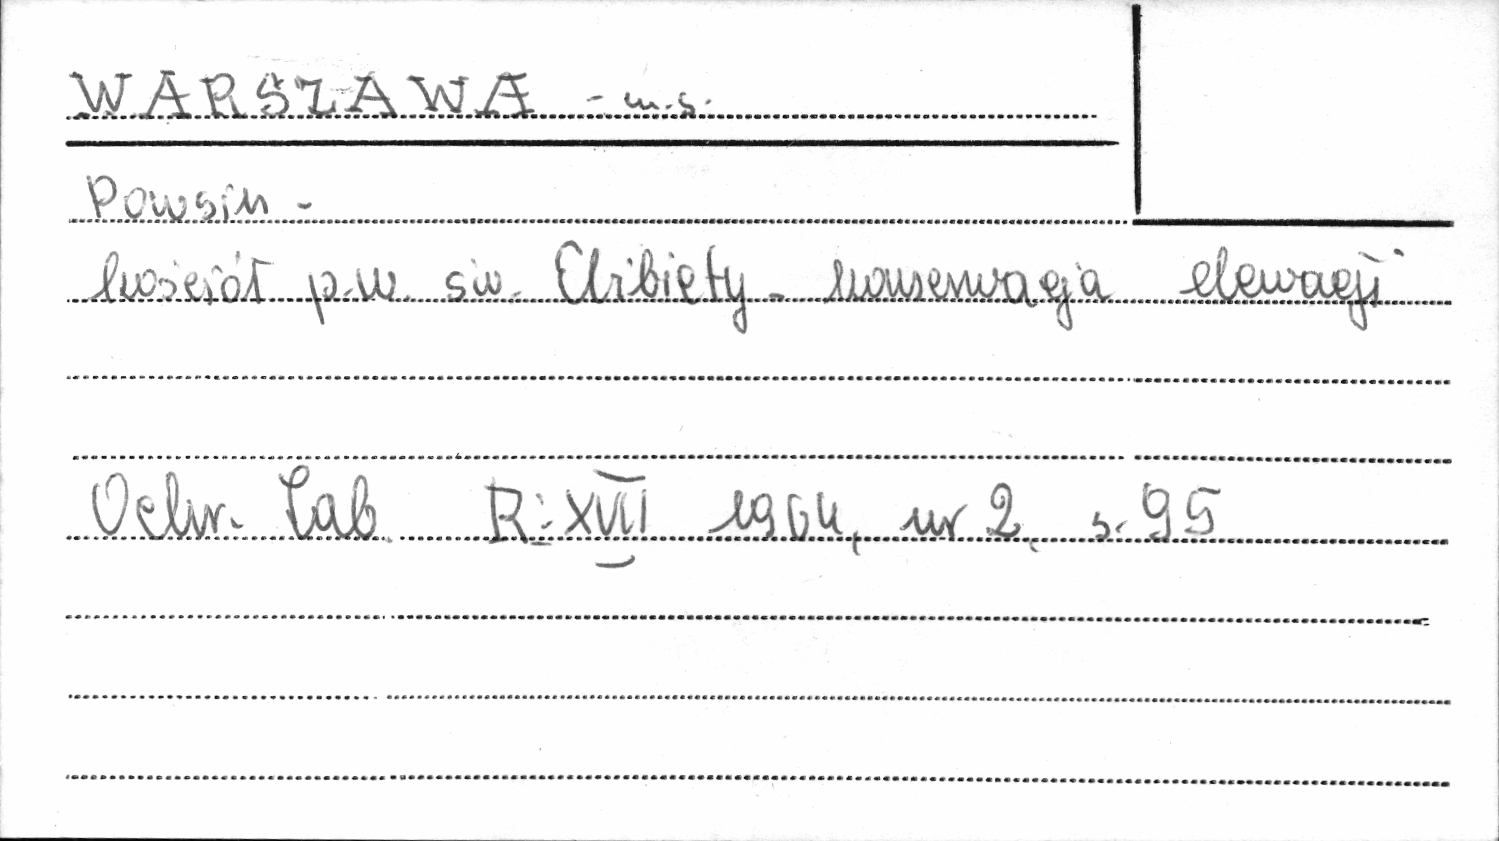 WARSZAWA - m.s.
Powsin -
kościół p.w. św. Elżbiety - konserwacja elewacji
Ochr. Zab. R: XVII 1964, nr 2, s. 95